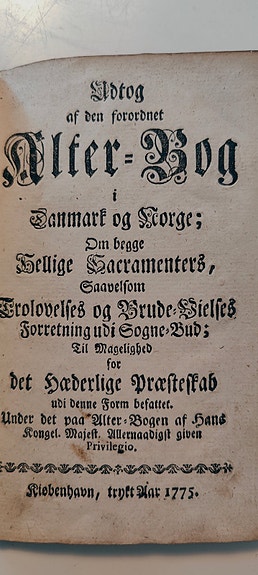 Udtog
af den forordnet
Alter-Bog
i
Danmark og Norge;
Om begge
Hellige Sacramenters,
Saavelsom
Trolovelses og Brude-Vielses
Forretning udi Sogne-Bud;
Til Magelighed
for
det Hæderlige Præsteskab
udi denne Form befattet.
Under det paa Alter-Bogen af Hans
Kongel. Majest. Allernaadigst given
Privilegio.
Kiøbenhavn, trykt Aar 1775.